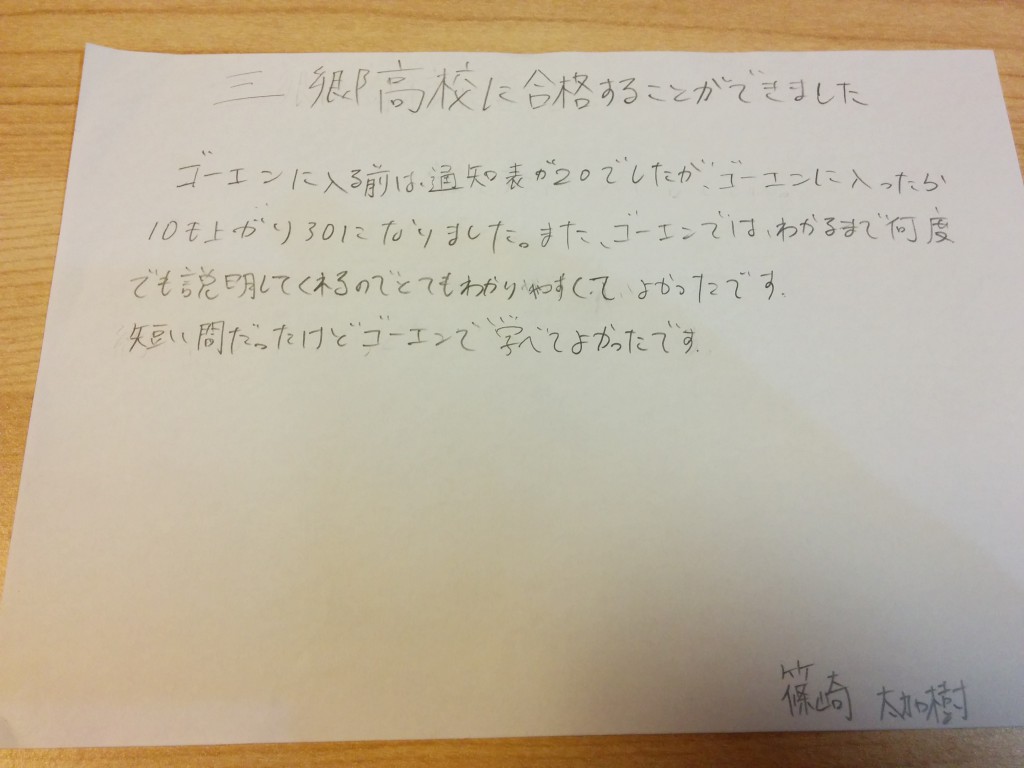 三郷高校に合格することができました
ゴーエンに入る前は、通知表が20でしたが、ゴーエンに入ったら
10も上がり30になりました。また、ゴーエンでは、わかるまで何度
でも説明してくれるのでとてもわかりやすくて、よかったです。
短い間だったけどゴーエンで学べてよかったです。
篠崎 太加樹